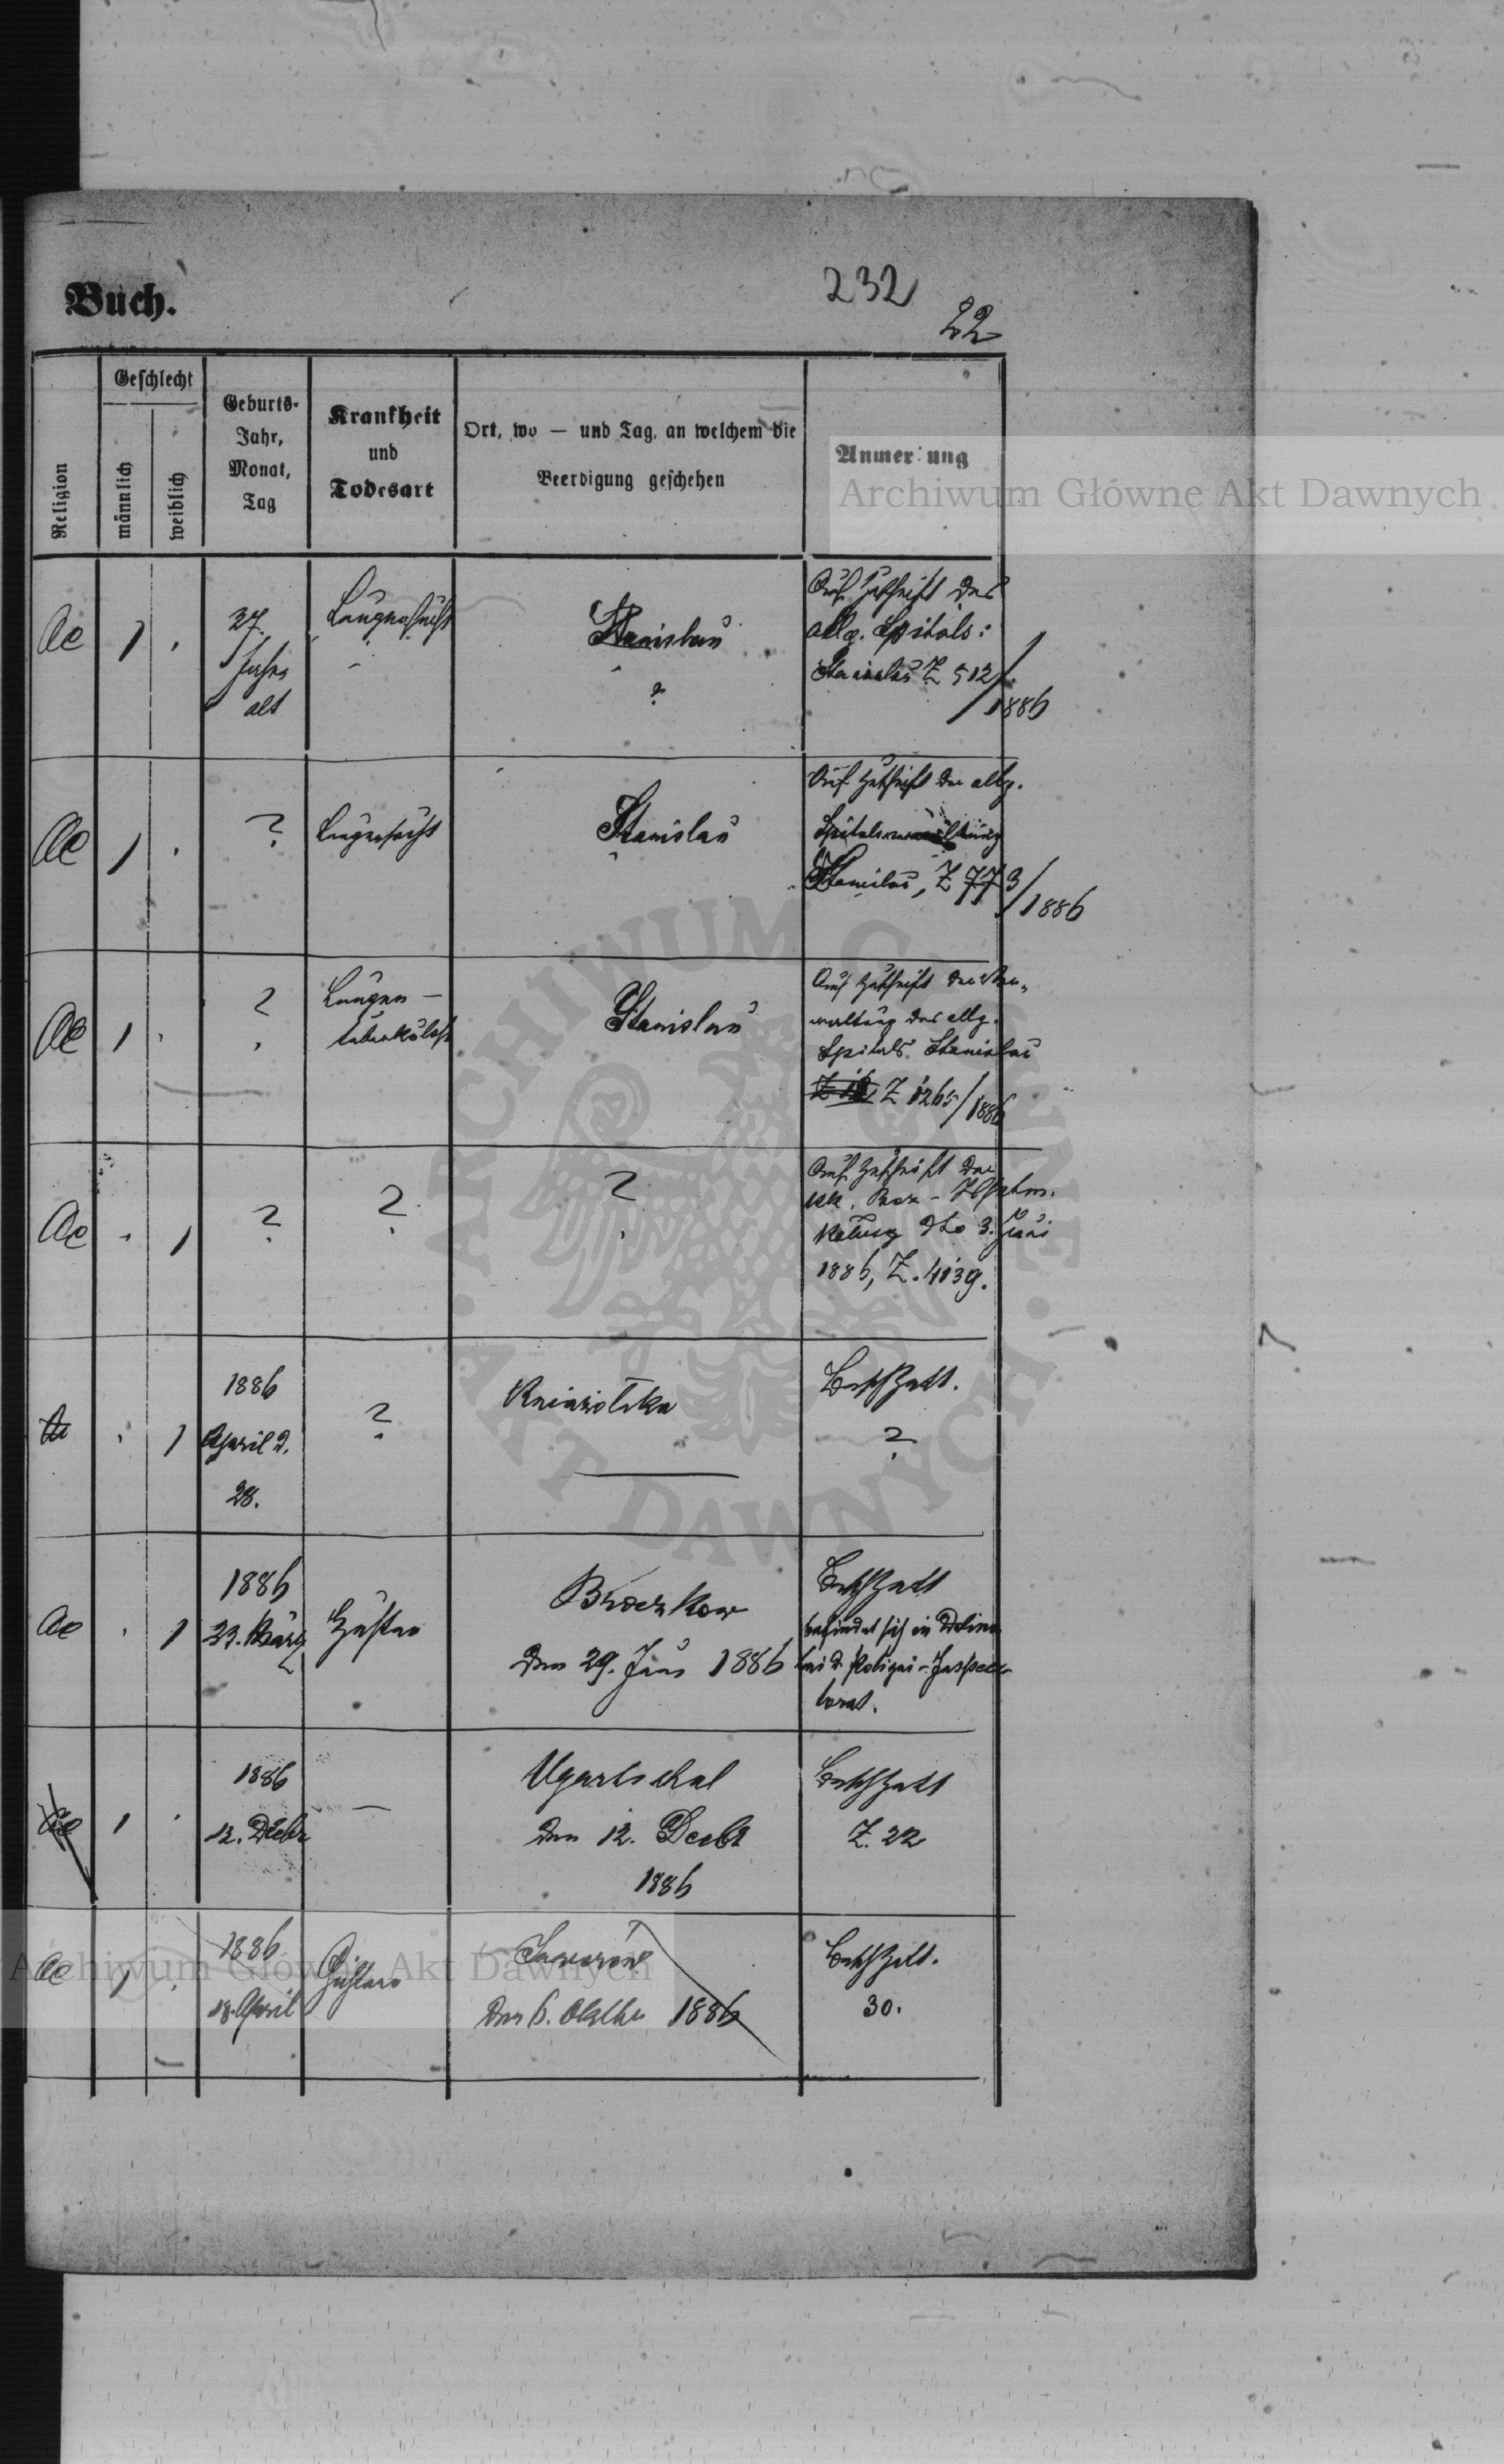 Buch.
232
22
Religion
Geschlecht
männlich
weiblich
Geburts-
Jahr,
Monat,
Tag
Krankheit
und
Todesart
Ort, wo — und Tag, an welchem die
Beerdigung geschehen
Anmerkung
Archiwum Główne Akt Dawnych
Ac 1 27. Lungensucht Stanislau Auf Zuschrift des
Jahre allg. Spitals:
alt ? Stanislau Z 512/
1886
Ac 1 ? Lungensucht Stanislau Auf Zuschrift der allg.
Spitalsverwaltung
Stanislau, Z 773/
1886
Ac 1 ? Lungen- Stanislau Auf Zuschrift der Ver-
tuberkulose waltung des allg.
Spitals Stanislau
Z 1265/1886
Ac 1 ? ? ? Auf Zuschrift der
kk. Bez-
Kalusz dto 3. Juni
1886, Z. 4139.
1 1886 ? Kniaziolska
April d. ?
28.
Ac 1 1886 Broczkow
23. März Husten den 29. Juni 1886 befindet sich in Dolina
bei d. Polizei-Inspec-
torat.
Ac 1 1886 — Ugartschal
12. Decbr den 12. Decbr Z. 22
1886
Ac 1 1886 Jaworów
18. April den 6. Oktbr 1886 30.
Archiwum Główne Akt Dawnych
ARCHIWUM GŁÓWNE AKT DAWNYCH